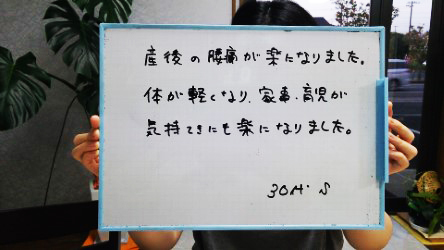 産後の腰痛が楽になりました。
体が軽くなり、家事・育児が
気持てきにも楽になりました。
30代 S